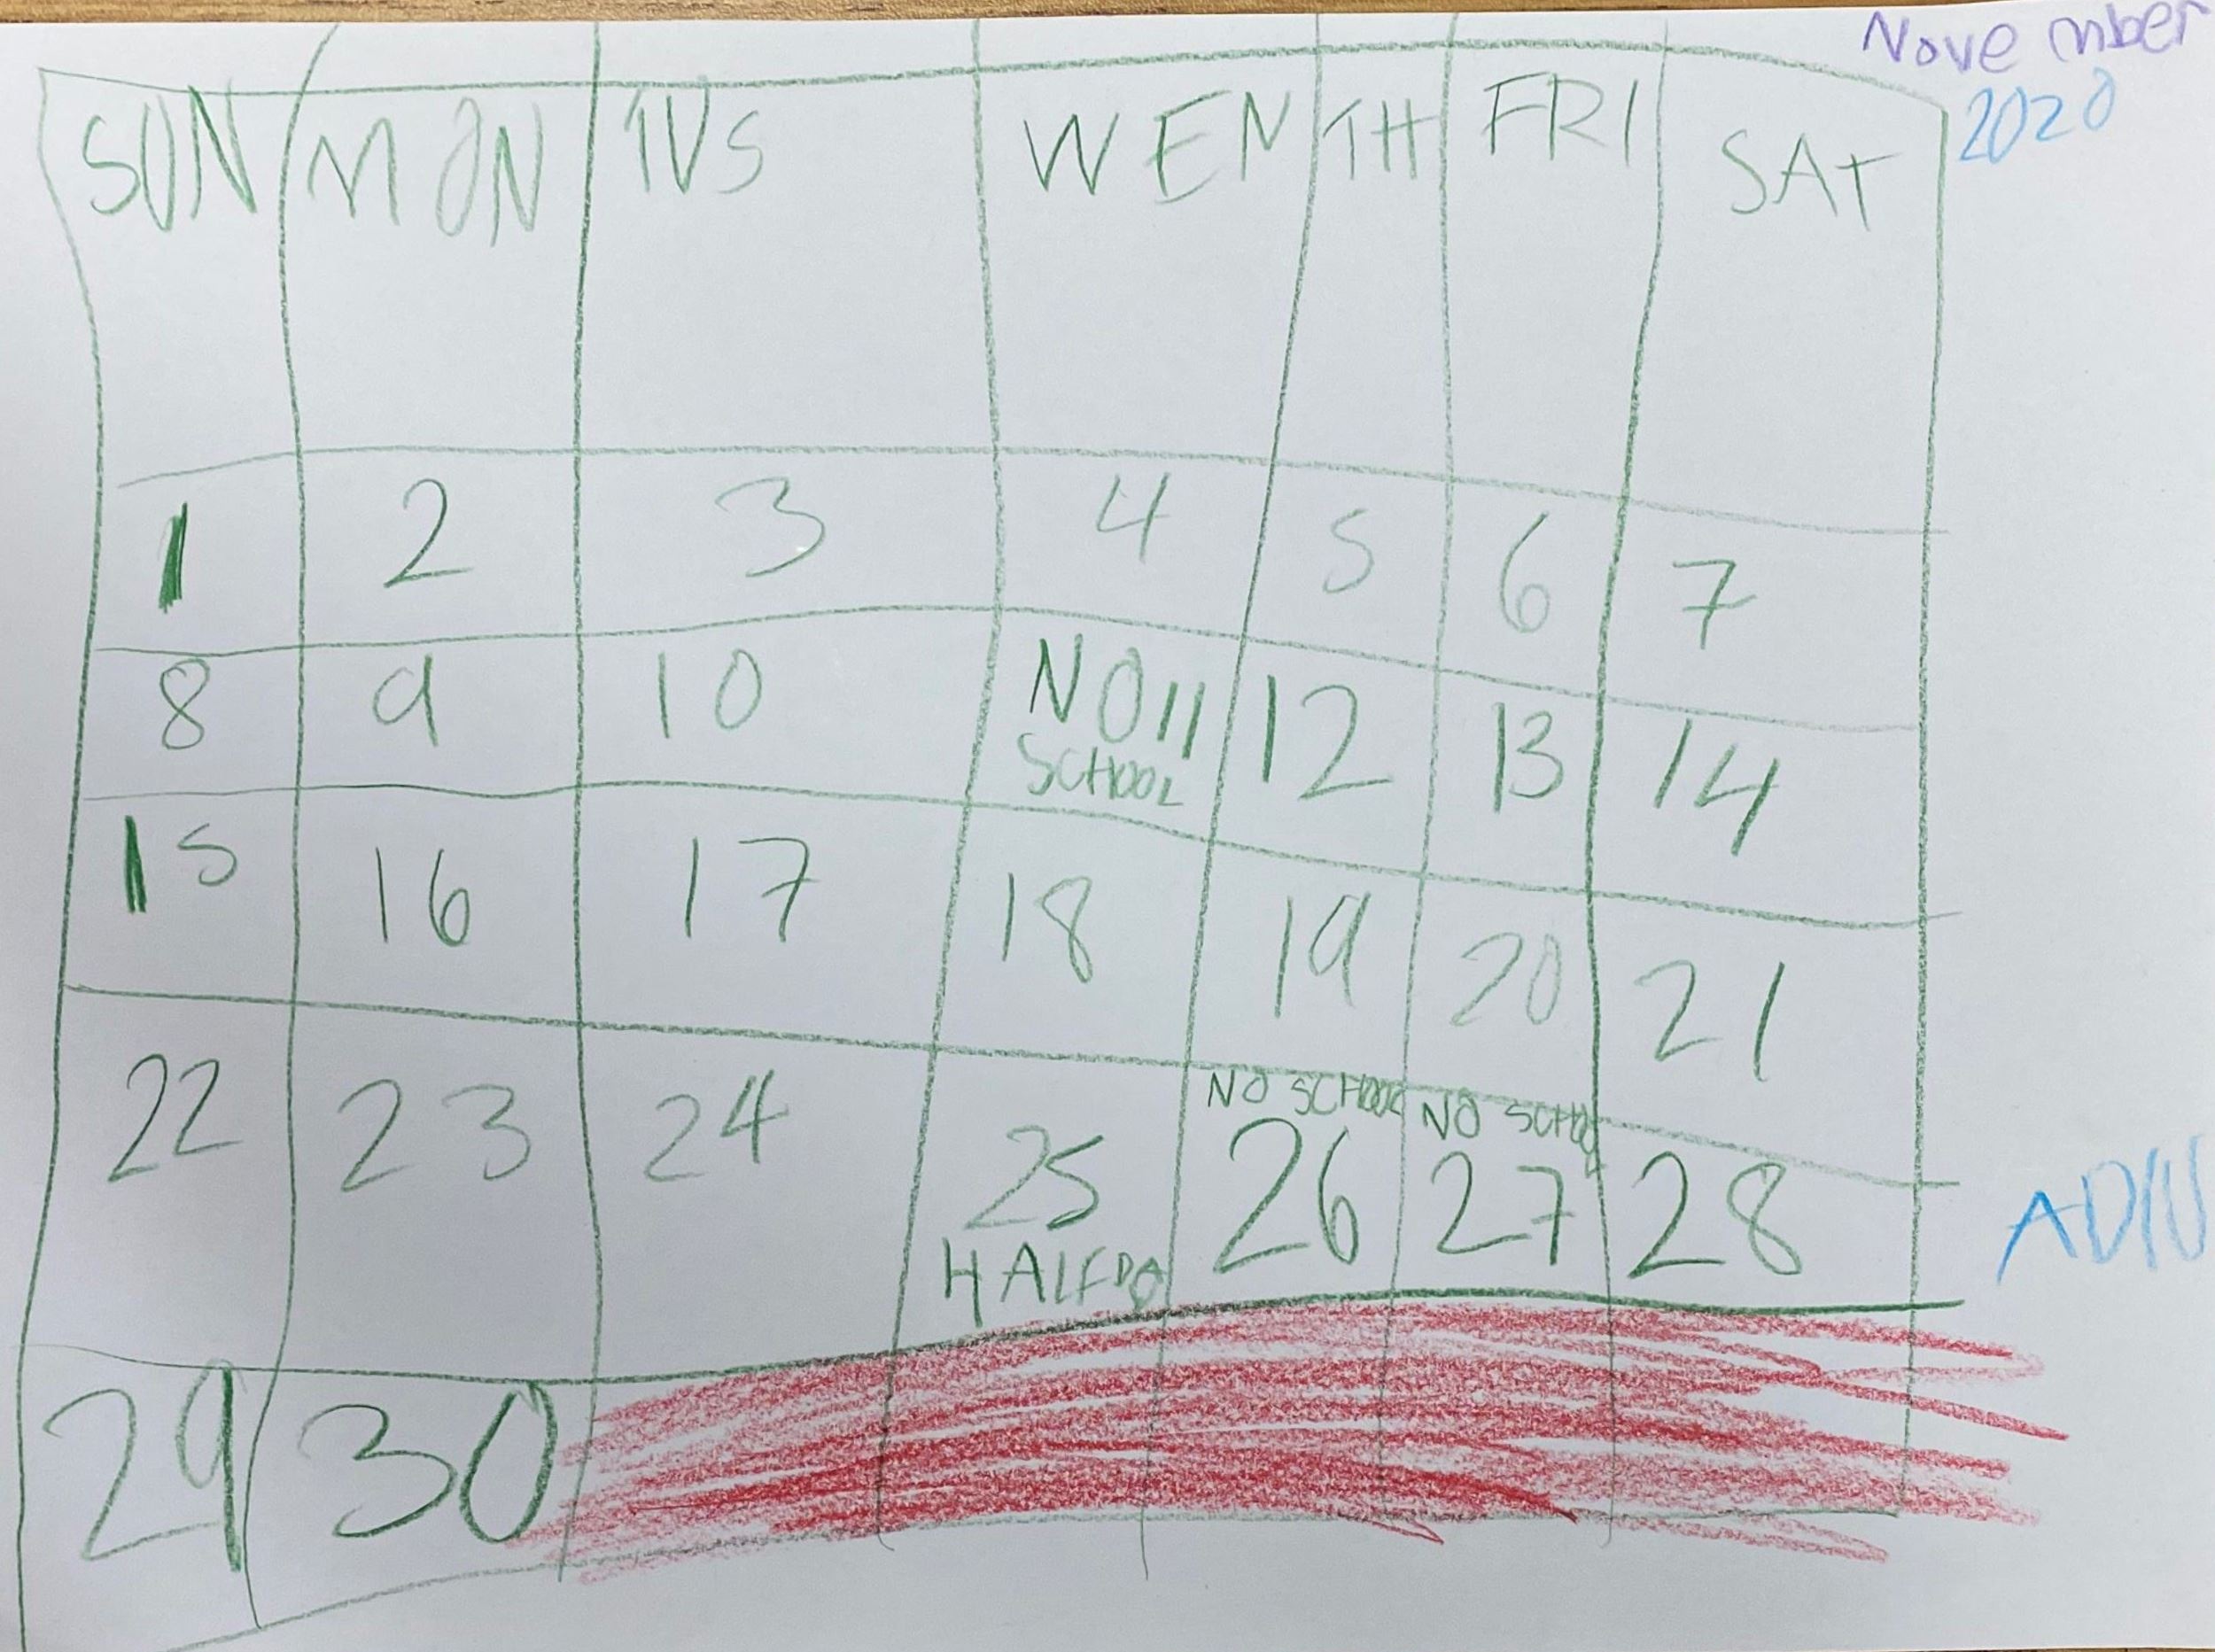 November
2020
SUN MON TUS WEN TH FRI SAT
1 2 3 4 5 6 7
8 9 10 NO 11 12 13 14
SCHOOL
15 16 17 18 19 20 21
NO SCHOOL NO SCHO
22 23 24 25 26 27 28
HALFDA
ADIN
29 30